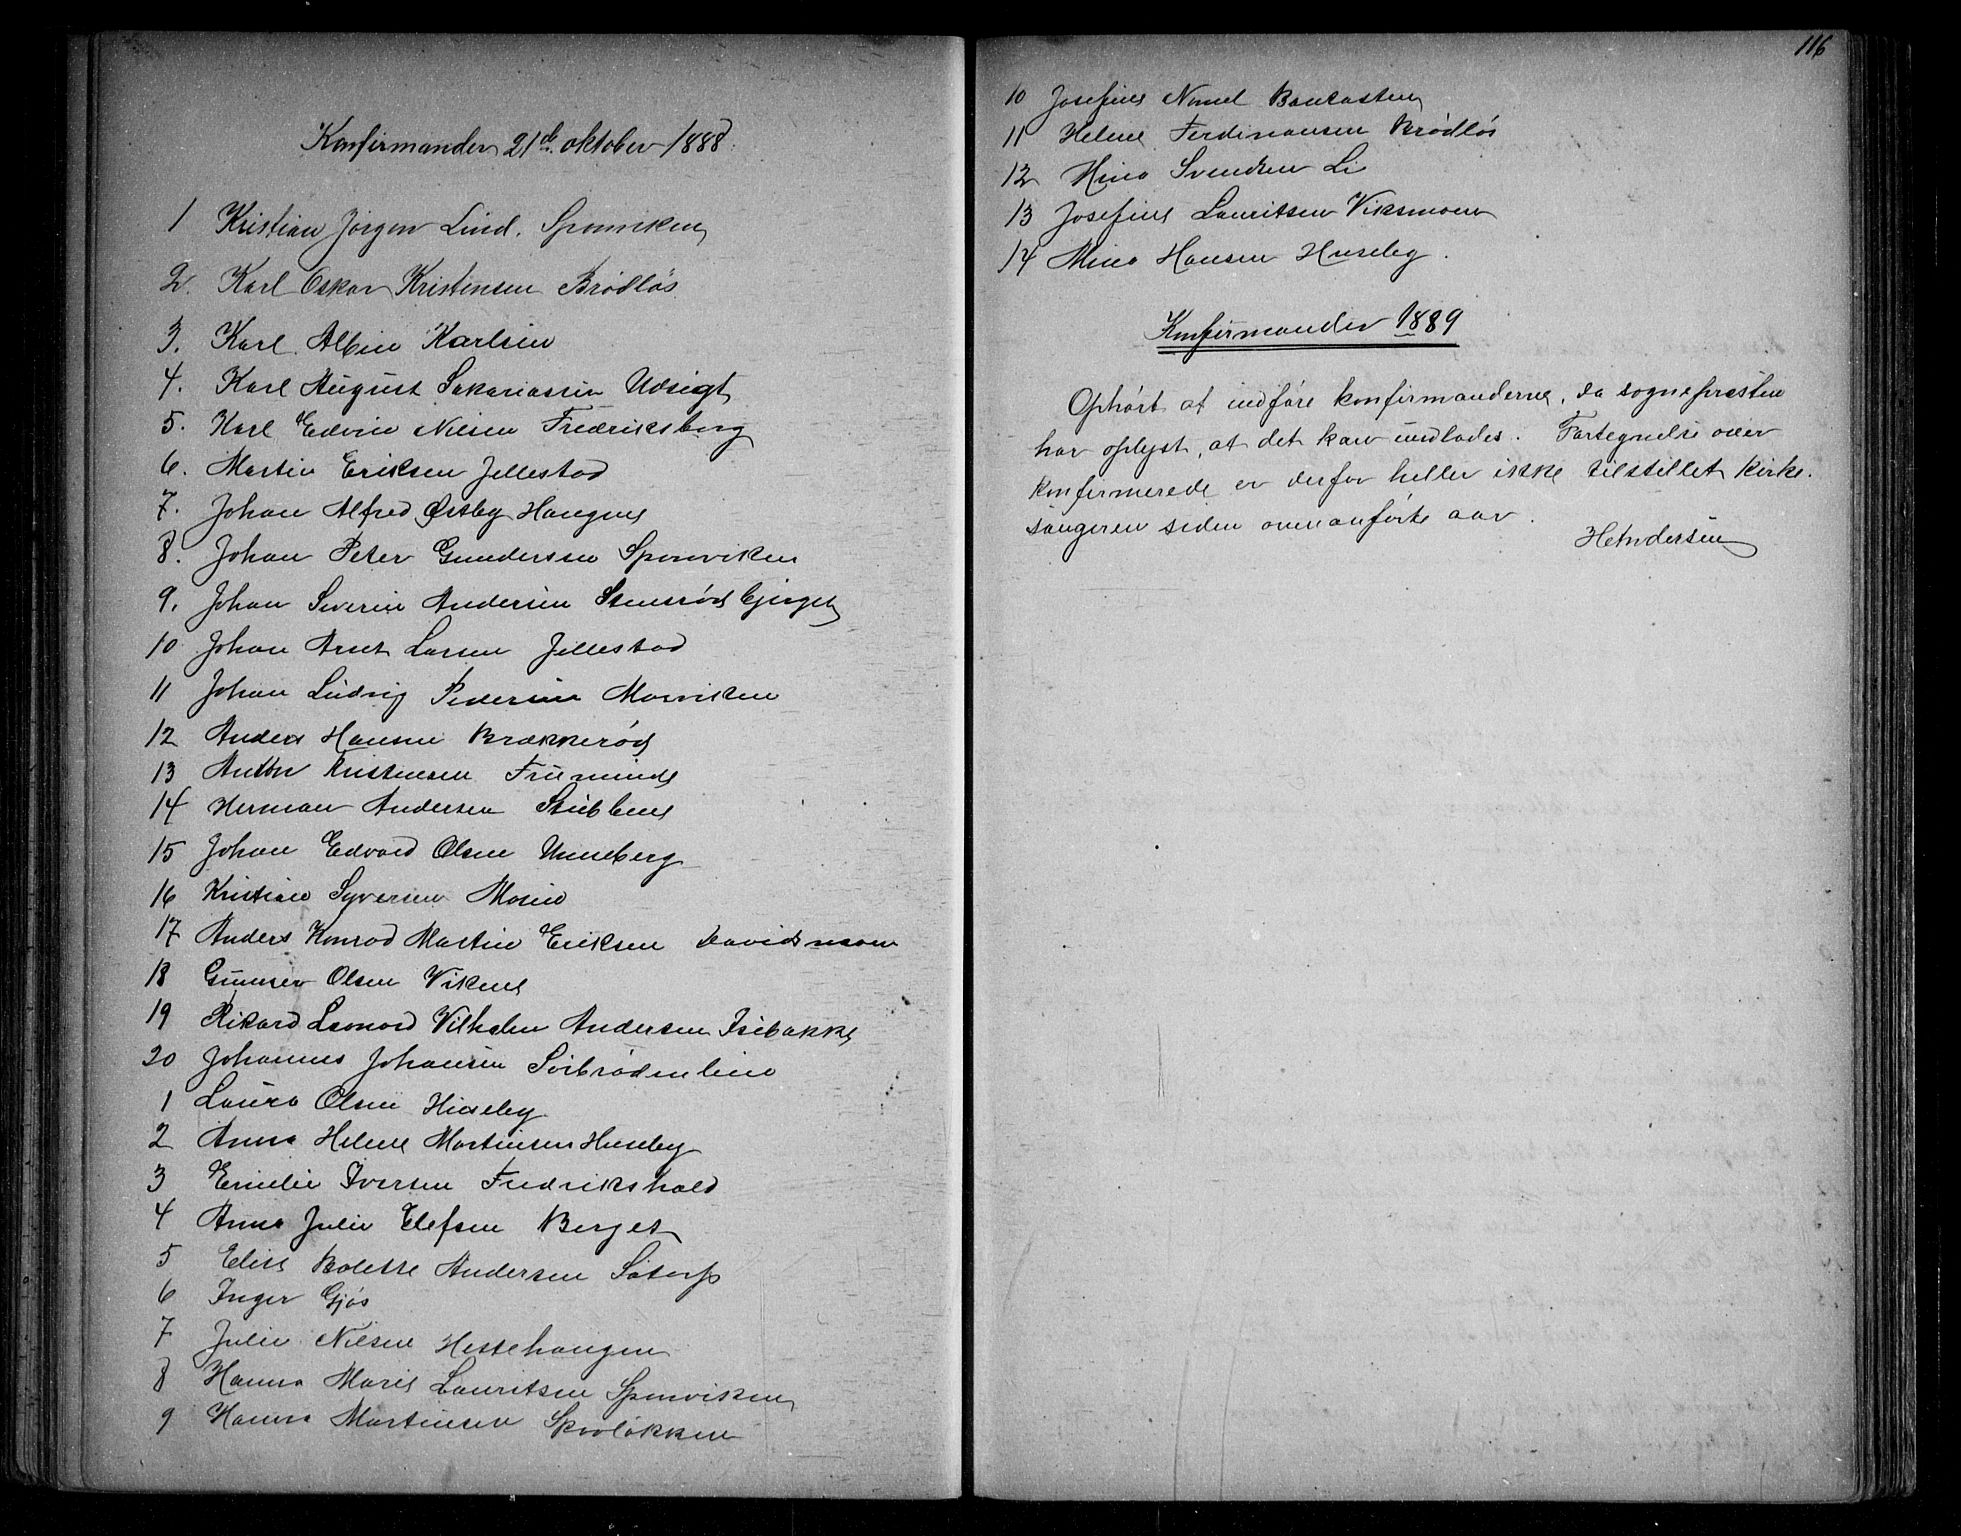 Konfirmander 21de oktober 1888.
1 Kristian Jørgen Lind. Sponviken
2. Karl Oskar Kristensen Brødløs
3. Karl Albin Karlsen
4. Karl August Sakariassen Udsigt
5. Karl Edvin Nilsen Fredriksberg
6. Martin Eriksen Jellestad
7. Johan Alfred Østby Haugene
8. Johan Peter Gundersen Sponviken
9. Johan Severin Andersen Stensrød
10 Johan Arnt Larsen Jellestad
11 Johan Ludvig Pedersen
12 Anders Hansen Brækkerød
13 Anton Kristensen
14 Herman Andersen Stubbene
15 Johan Edvard Olsen Unneberg
16 Kristian Syversen Moen
17 Anders Konrad Martin Eriksen Davidsmoen
18 Gunner Olsen Vikene
19 Rikard Leonard Vilhelm Andersen Isebakke
20 Johannes Johansen Sørbrødenleie
1 Laura Olsen Huseby
2 Anna Helene Martinsen Huseby
3 Emelie Iversen Fredrikshald
4 Anna Julie Elefsen Berget
5 Elise Bolette Andersen Såtorp
6 Inger Gjøs
7 Julie Nilsen Hestehaugen
8 Hanna Marie Lauritsen Sponviken
9 Hanna Martinsen Skovløkken
116
10 Josefine
11 Helene Ferdinansen Brødløs
12 Mina Svendsen Li
13 Josefine Lauritsen Viksmoen
14 Mina Hansen Huseby.
Konfirmander 1889
Ophørt at indføre konfirmanderne, da sognepresten
har oplyst, at det kan undlades. Fortegnelse over
konfirmerede er derfor heller ikke tilstillet kirke-
sangeren siden ovenanførte aar.
HAndersen